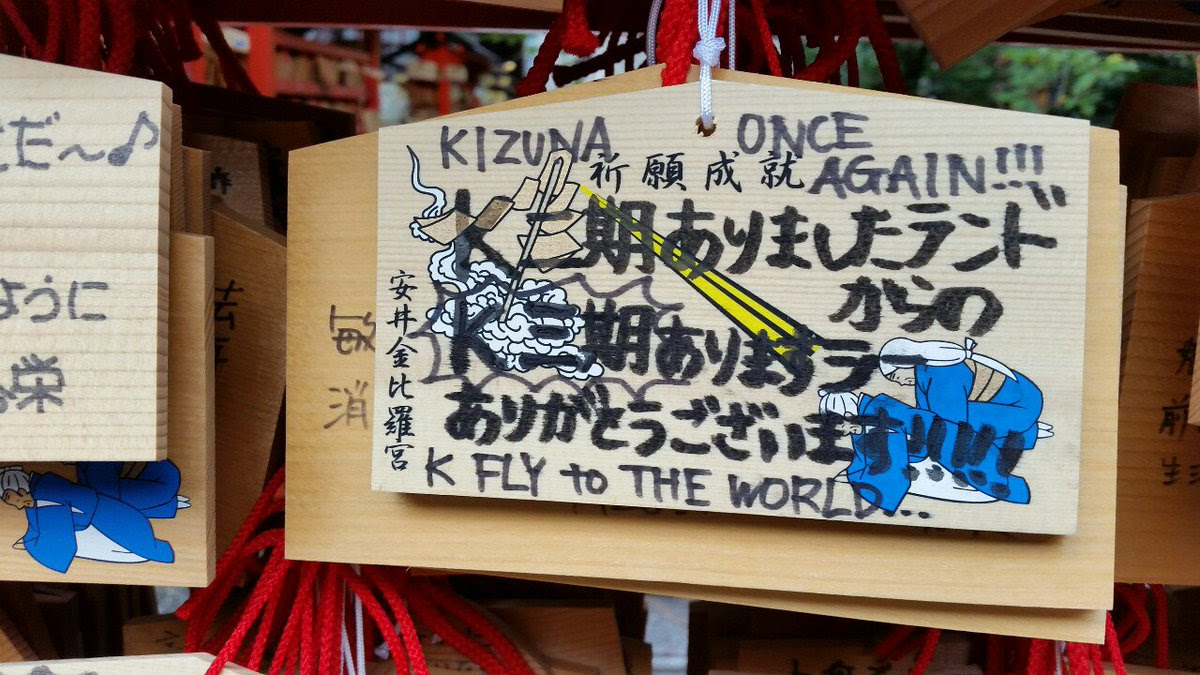 KIZUNA ONCE
AGAIN!!!
祈願成就
K三期ありましたランド
からの
K三期ありますラー
ありがとうございます!!!!
K FLY to THE WORLD...
安井金比羅宮
だ〜♪
ように
栄
敏
消
前